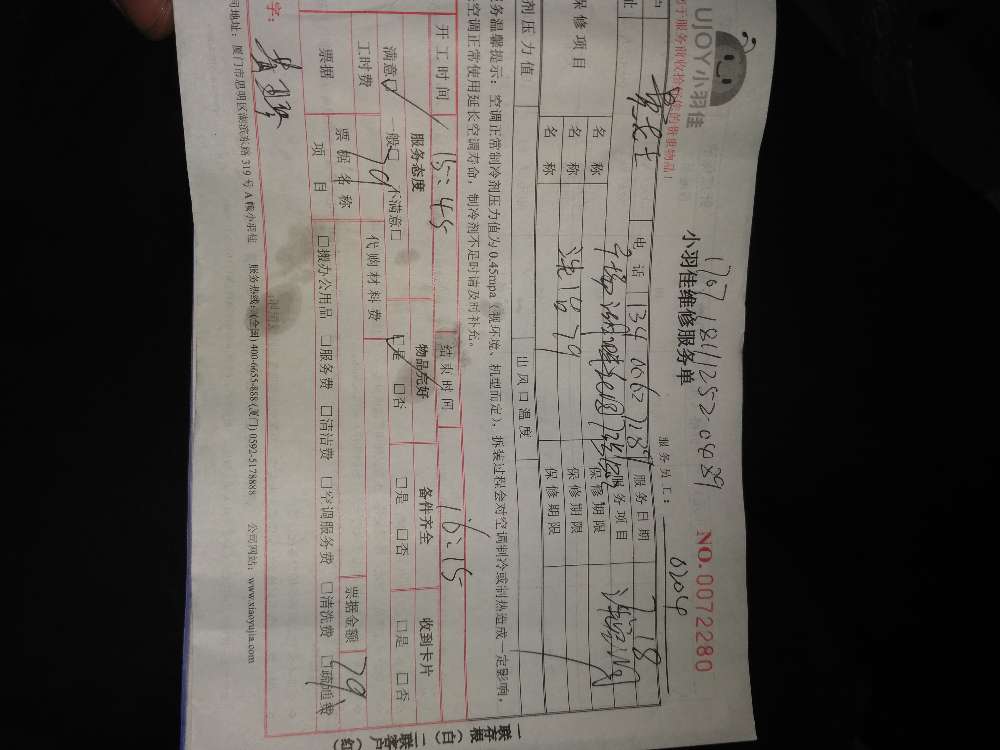 UJOY小羽佳
1707181125204​89
小羽佳维修服务单
NO.0072280
服务员工：
0204
电话
服务日期
7.18
服务项目
保修项目
名称
保修期限
名称
洗悟79
保修期限
名称
保修期限
剂压力值
出风口温度
务温馨提示：空调正常制冷剂压力值为0.45mpa（视环境、机型而定），拆装过程会对空调制冷或制热造成一定影响，
空调正常使用延长空调寿命，制冷剂不足时请及时补充。
开工时间
15:45
结束时间
16:15
服务态度
物品完好
备件齐全
收到卡片
满意□ 一般□ 不满意□
□是 □否
□是 □否
□是 □否
工时费
79
代购材料费
票据
票据名称
票据金额
79
项目
□搬办公用品 □服务费 □清洁费 □空调服务费 □清洗费 □疏通费
字：
司地址：厦门市思明区湖滨东路319号A幢小羽佳 服务热线：(全国) 400-6655-888 (厦门) 0592-5178888 公司网站：www.xiaoyujia.com
一联存根（白）二联客户（红